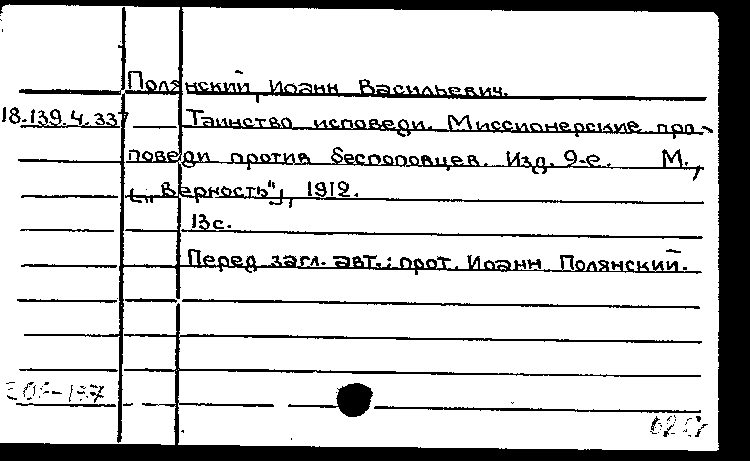 Полянский, Иоанн Васильевич.
18.139.4.337 Таинство исповеди. Миссионерские про-
поведи против беспоповцев. Изд. 9-е. М.,
[„Верность"], 1912.
13с.
Перед загл. авт.: прот. Иоанн Полянский.